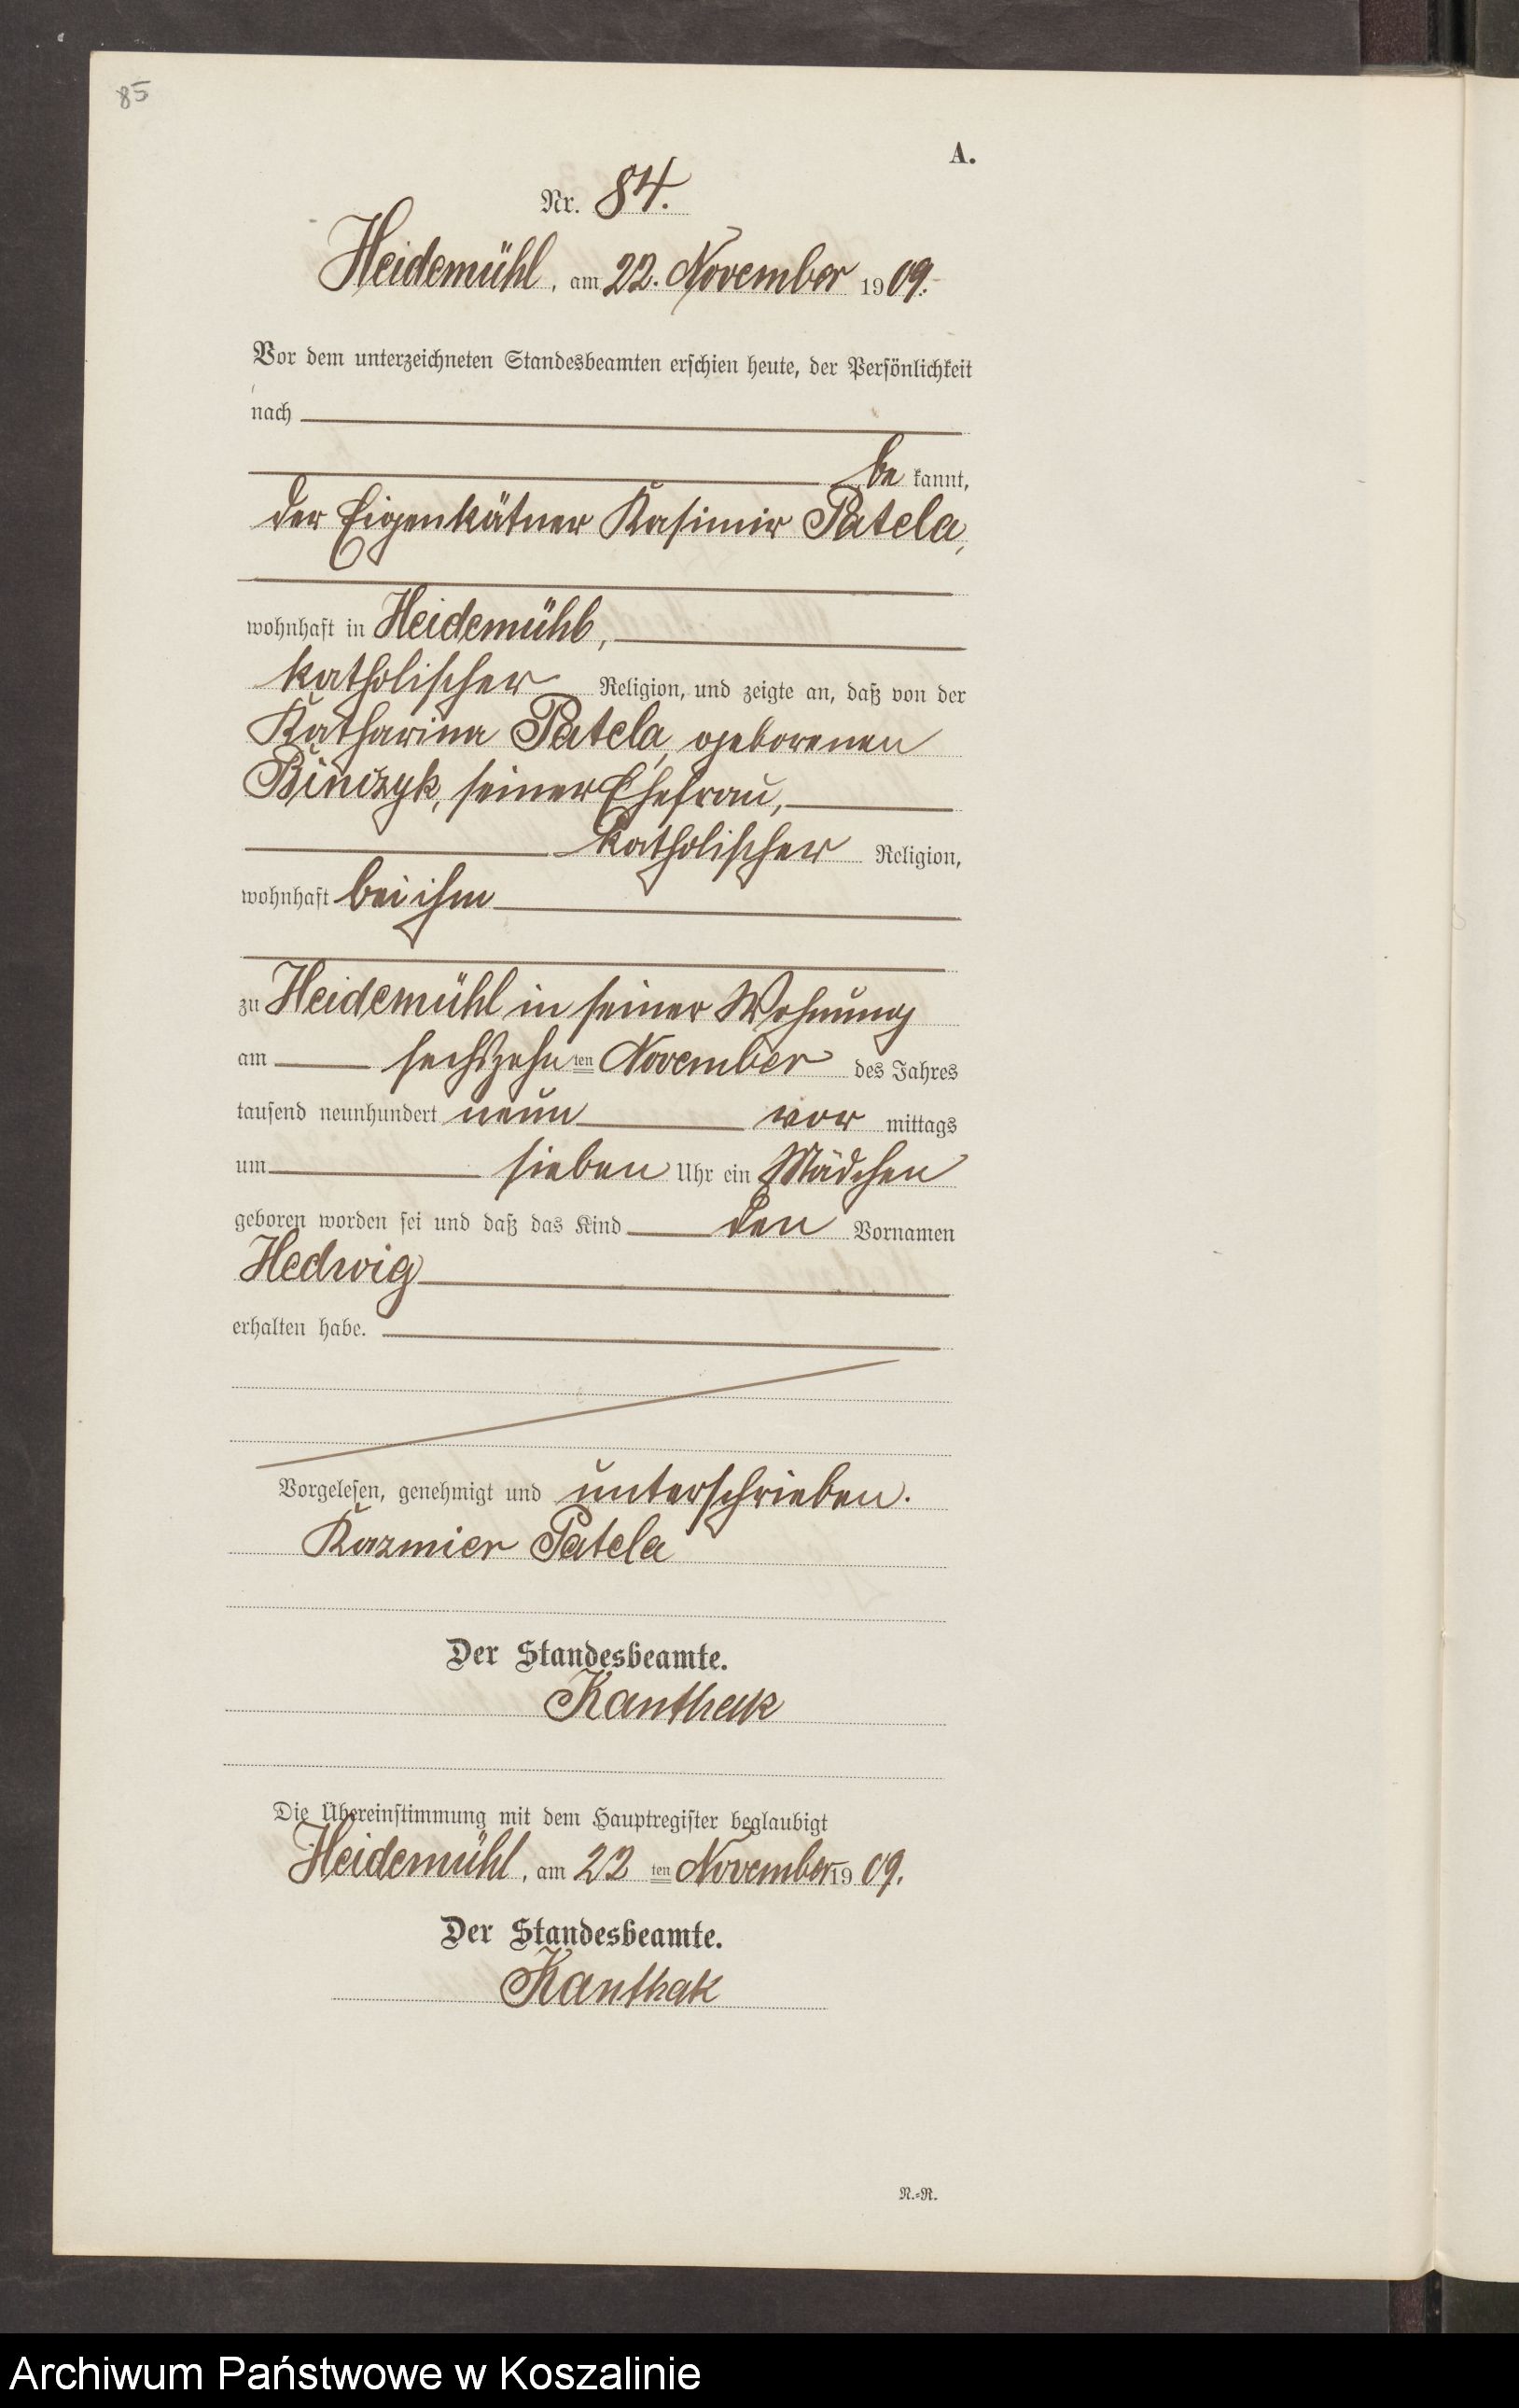 85
A.
Nr. 84.
Heidemühl, am 22. November 1909.
Vor dem unterzeichneten Standesbeamten erschien heute, der Persönlichkeit
nach
be kannt,
der Eigenkätner Kasimir Patela,
wohnhaft in Heidemühl,
katholischer Religion, und zeigte an, daß von der
Katharina Patela, geborenen
Binczyk, seiner Ehefrau,
katholischer Religion,
wohnhaft bei ihm
zu Heidemühl in seiner Wohnung
am sechszehn ten November des Jahres
tausend neunhundert neun vor mittags
um sieben Uhr ein Mädchen
geboren worden sei und daß das Kind den Vornamen
Hedwig
erhalten habe.
Vorgelesen, genehmigt und unterschrieben.
Kazmier Patela
Der Standesbeamte.
Kanthak
Die Übereinstimmung mit dem Hauptregister beglaubigt
Heidemühl, am 22 ten November 1909.
Der Standesbeamte.
Kanthak
N.=R.
Archiwum Państwowe w Koszalinie